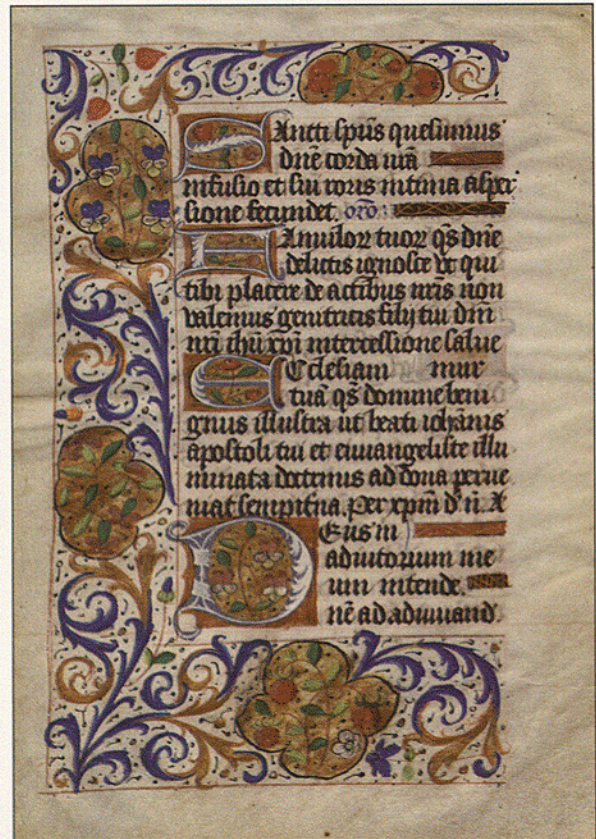 Sancti sp̄us quesumus
dn̄e corda nr̄a
infusio et sui roris intima asper
sione fecundet. or̄o
Famulor tuor qs̄ dn̄e
delictis ignosce vt qui
tibi placere de actibus nr̄is non
valemus genitricis filij tui dn̄i
nr̄i ihū xp̄i intercessione salue
Ecclesiam mur
tuā qs̄ domine beni
gnus illustra ut beati ioh̄anis
apostoli tui et euuangeliste illu
minata doctrinis ad dona perue
niat sempit̄na. Per xp̄m d. n̄. X
Deus in
adiutorium me
um intende.
nē ad adiuuand.